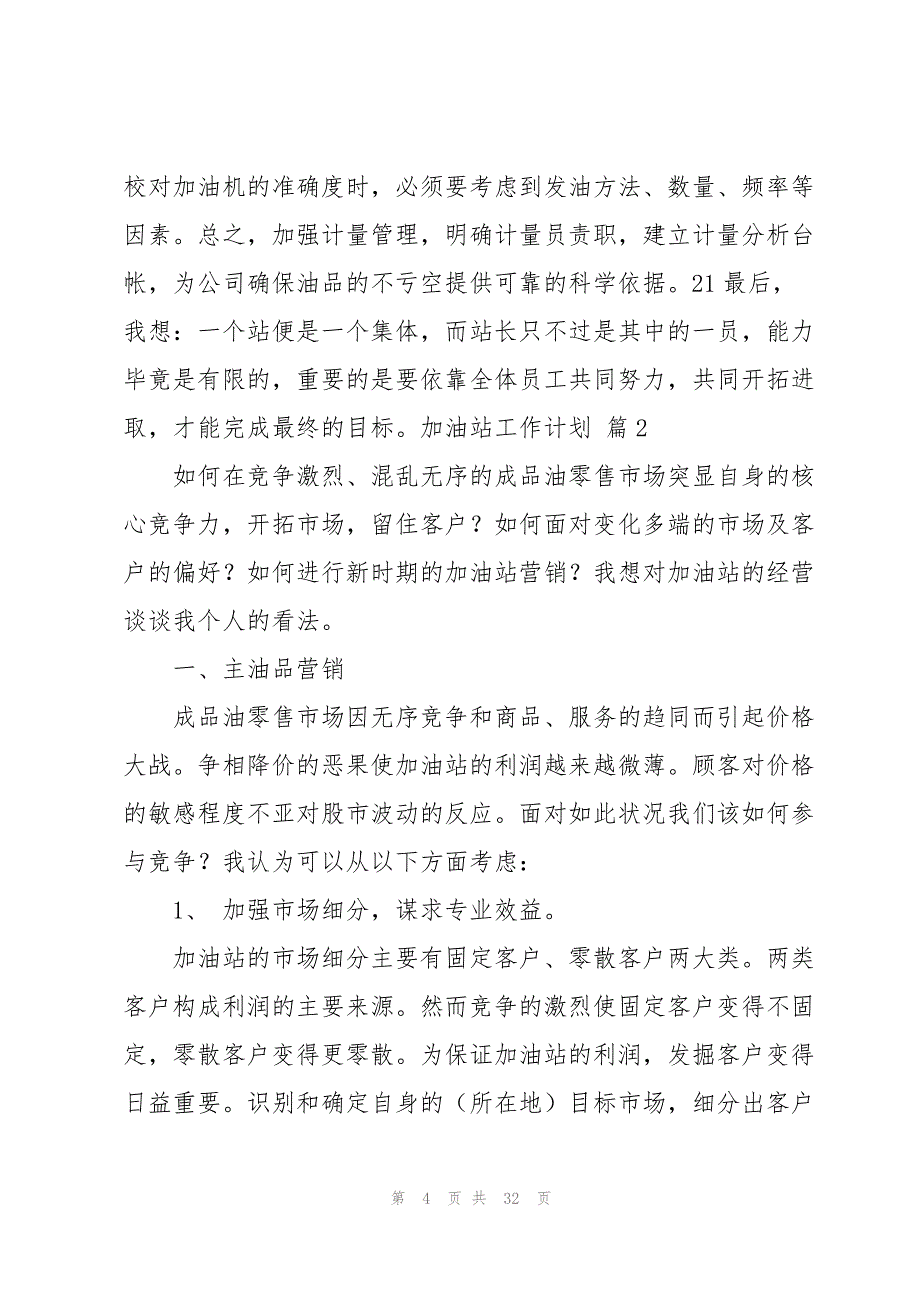 校对加油机的准确度时，必须要考虑到发油方法、数量、频率等
因素。总之，加强计量管理，明确计量员责职，建立计量分析台
帐，为公司确保油品的不亏空提供可靠的科学依据。21 最后，
我想：一个站便是一个集体，而站长只不过是其中的一员，能力
毕竟是有限的，重要的是要依靠全体员工共同努力，共同开拓进
取，才能完成最终的目标。加油站工作计划 篇2
如何在竞争激烈、混乱无序的成品油零售市场突显自身的核
心竞争力，开拓市场，留住客户？如何面对变化多端的市场及客
户的偏好？如何进行新时期的加油站营销？我想对加油站的经营
谈谈我个人的看法。
一、主油品营销
成品油零售市场因无序竞争和商品、服务的趋同而引起价格
大战。争相降价的恶果使加油站的利润越来越微薄。顾客对价格
的敏感程度不亚对股市波动的反应。面对如此状况我们该如何参
与竞争？我认为可以从以下方面考虑：
1、 加强市场细分，谋求专业效益。
加油站的市场细分主要有固定客户、零散客户两大类。两类
客户构成利润的主要来源。然而竞争的激烈使固定客户变得不固
定，零散客户变得更零散。为保证加油站的利润，发掘客户变得
日益重要。识别和确定自身的（所在地）目标市场，细分出客户
第 4 页 共 32 页